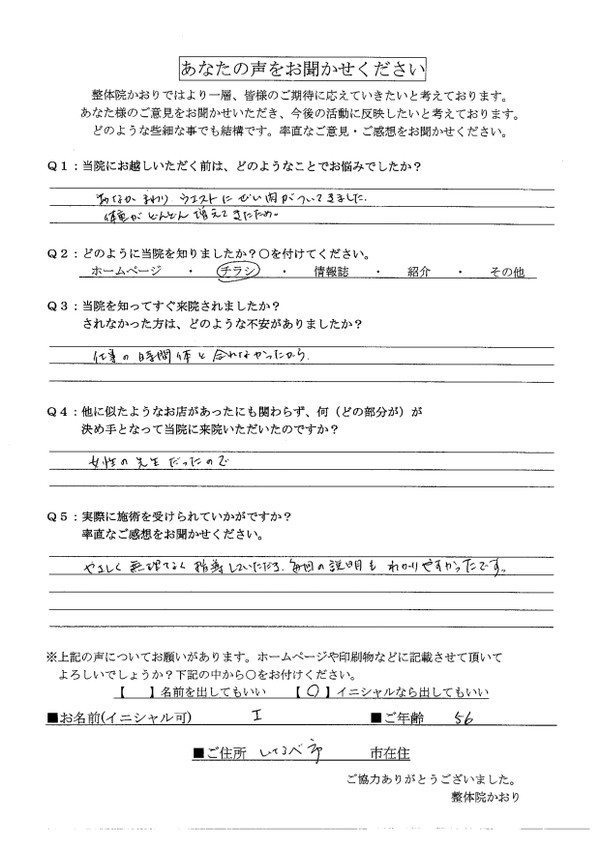 あなたの声をお聞かせください
整体院かおりではより一層、皆様のご期待に応えていきたいと考えております。
あなた様のご意見をお聞かせいただき、今後の活動に反映したいと考えております。
どのような些細な事でも結構です。率直なご意見・ご感想をお聞かせください。
Q1：当院にお越しいただく前は、どのようなことでお悩みでしたか？
おなか まわり ウエストに ぜい肉がついてきました.
体重が どんどん 増えてきたため。
Q2：どのように当院を知りましたか？〇を付けてください。
ホームページ ・ チラシ ・ 情報誌 ・ 紹介 ・ その他
Q3：当院を知ってすぐ来院されましたか？
されなかった方は、どのような不安がありましたか？
仕事の 時間体と 合わなかったから.
Q4：他に似たようなお店があったにも関わらず、何（どの部分が）が
決め手となって当院に来院いただいたのですか？
女性の先生だったので
Q5：実際に施術を受けられていかがですか？
率直なご感想をお聞かせください。
やさしく 無理なく 指導していただき、毎回の説明も わかりやすかったです。
※上記の声についてお願いがあります。ホームページや印刷物などに記載させて頂いて
よろしいでしょうか？下記の中から〇をお付けください。
【　】名前を出してもいい 【〇】イニシャルなら出してもいい
■お名前(イニシャル可) I ■ご年齢 56
■ご住所 市在住
ご協力ありがとうございました。
整体院かおり